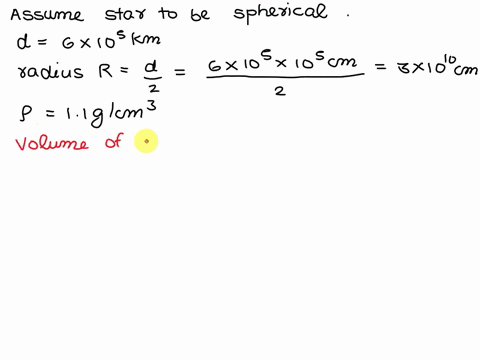 Assume star to be spherical.
d = 6 × 10⁵ km
radius R = d/2 = (6 × 10⁵ × 10⁵ cm)/2 = 3 × 10¹⁰ cm
ρ = 1.1 g/cm³
Volume of